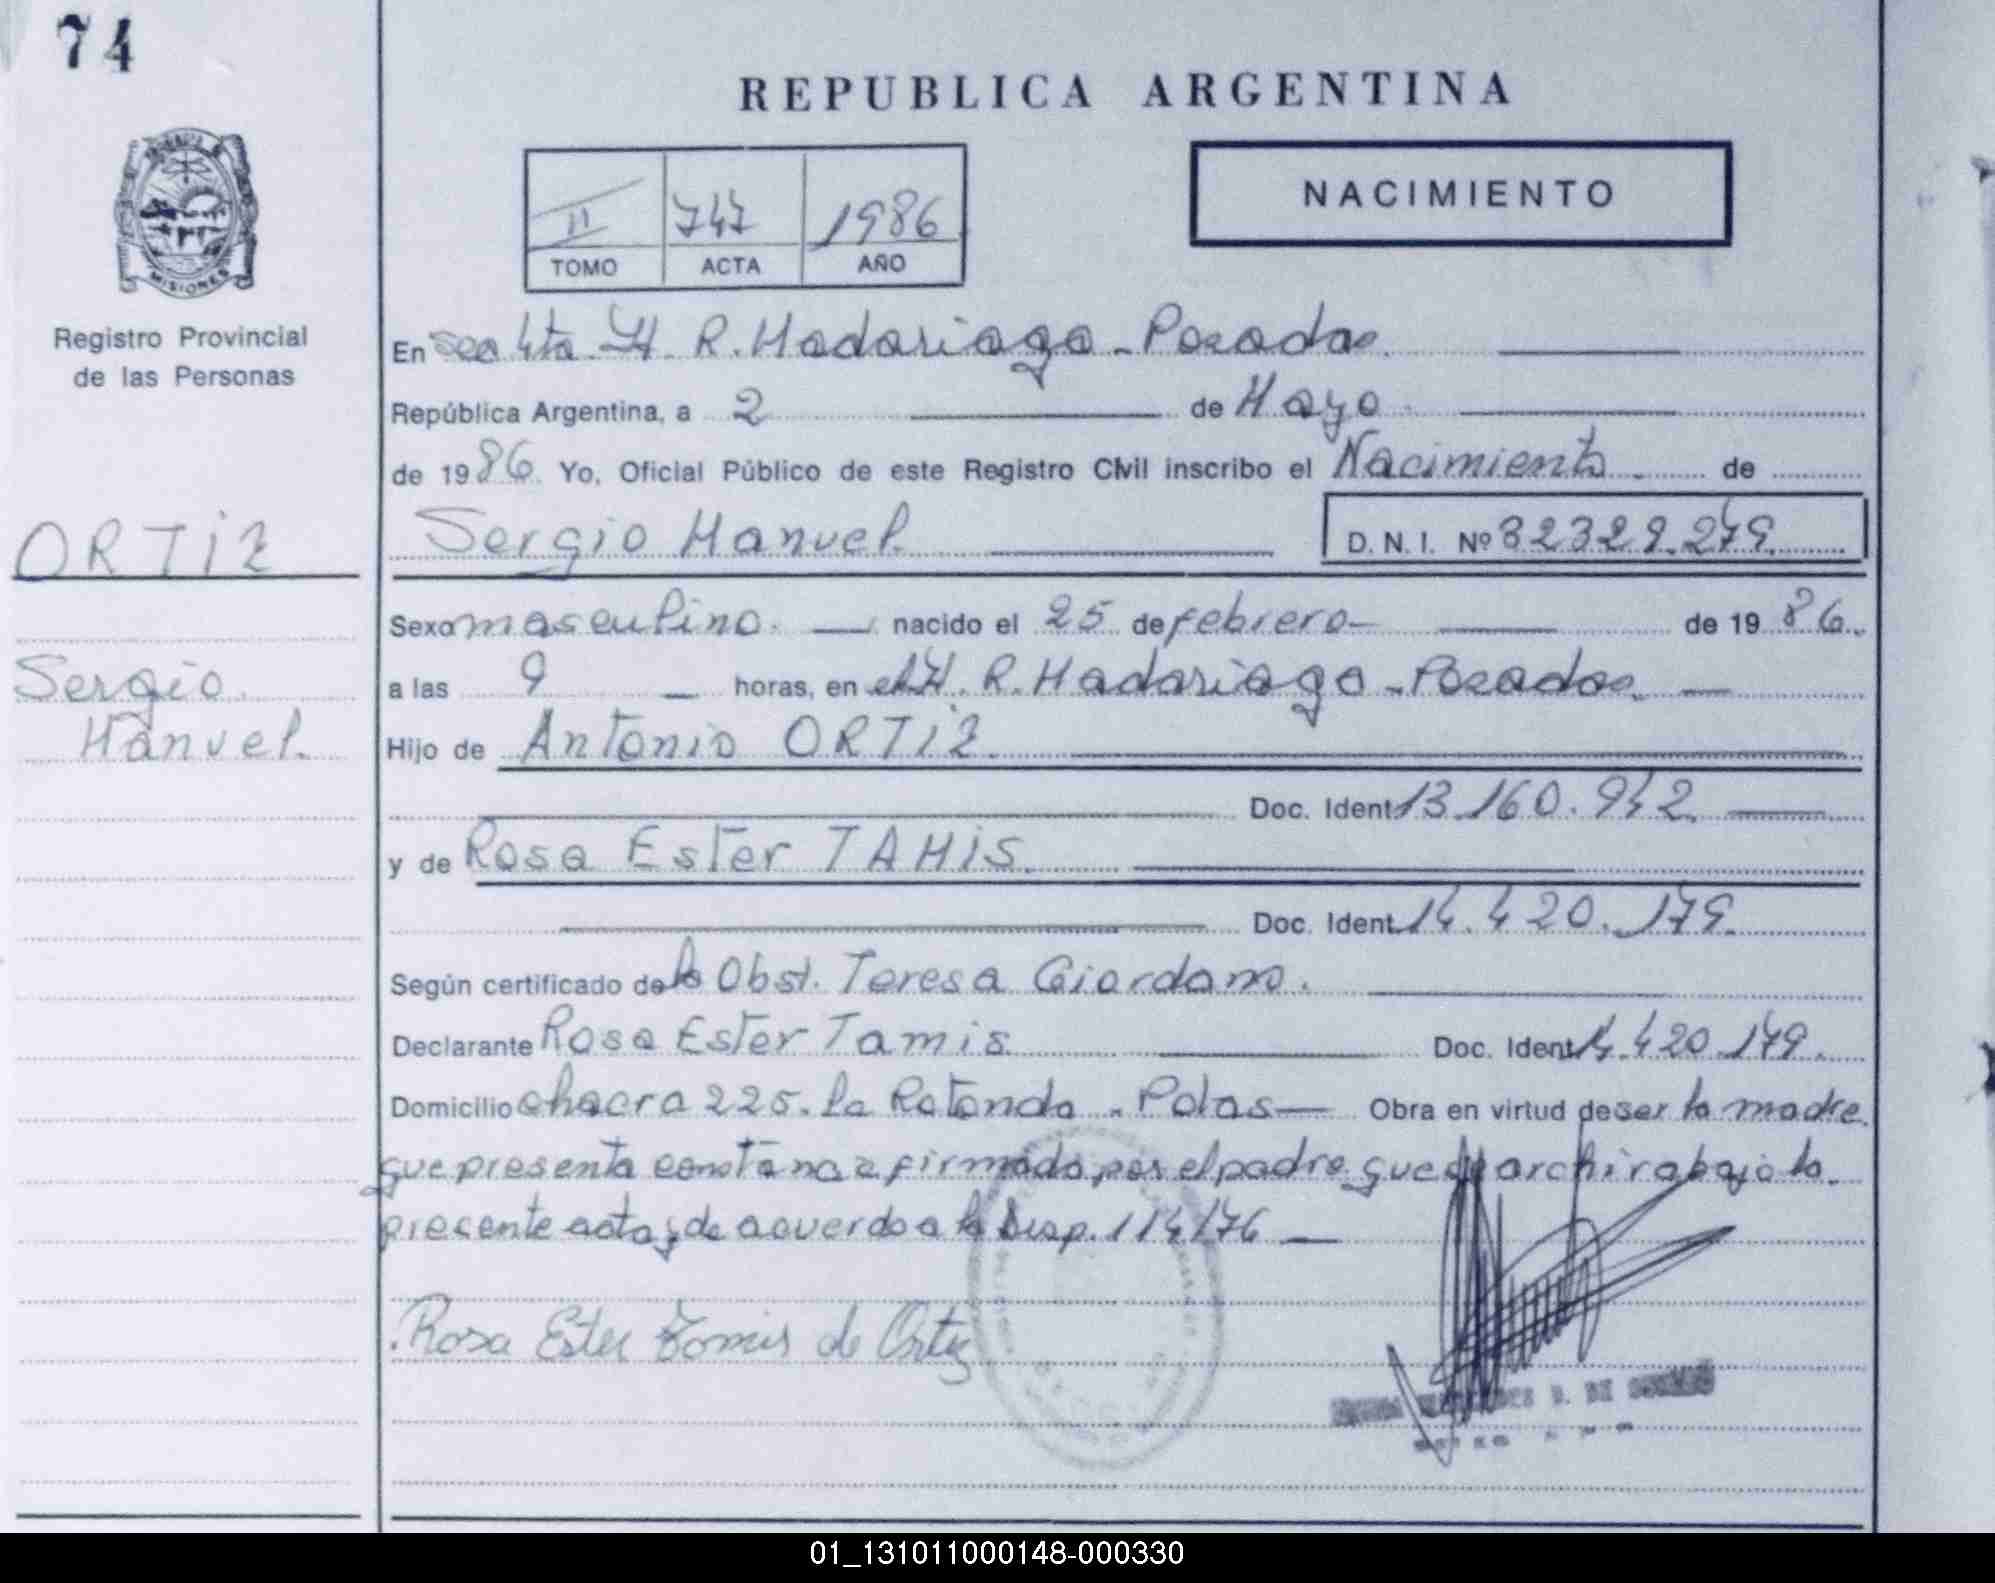 74
REPUBLICA ARGENTINA
II 747 1986
TOMO ACTA AÑO
NACIMIENTO
MISIONES
Registro Provincial
de las Personas
En Sec 4ta. H. R. Madariaga - Posadas.
República Argentina, a 2 de Mayo
de 1986. Yo, Oficial Público de este Registro Civil inscribo el Nacimiento de
ORTIZ
Sergio Manuel. D. N. I. Nº 32329.279.
Sexo masculino. nacido el 25 de febrero de 1986.
Sergio
Manuel.
a las 9 horas, en el H. R. Madariaga - Posadas.
Hijo de Antonio ORTIZ.
Doc. Ident 13.160.942.
y de Rosa Ester TAMIS.
Doc. Ident. 14.420.179.
Según certificado de la Obst. Teresa Giordano.
Declarante Rosa Ester Tamis Doc. Ident. 14.420.179.
Domicilio chacra 225. La Rotonda - Pdas — Obra en virtud de ser la madre
que presenta constancia firmada por el padre que se archiva bajo la
presente acta y de acuerdo a la Disp. 114/76 —
Rosa Ester Tamis de Ortiz
01_131011000148-000330